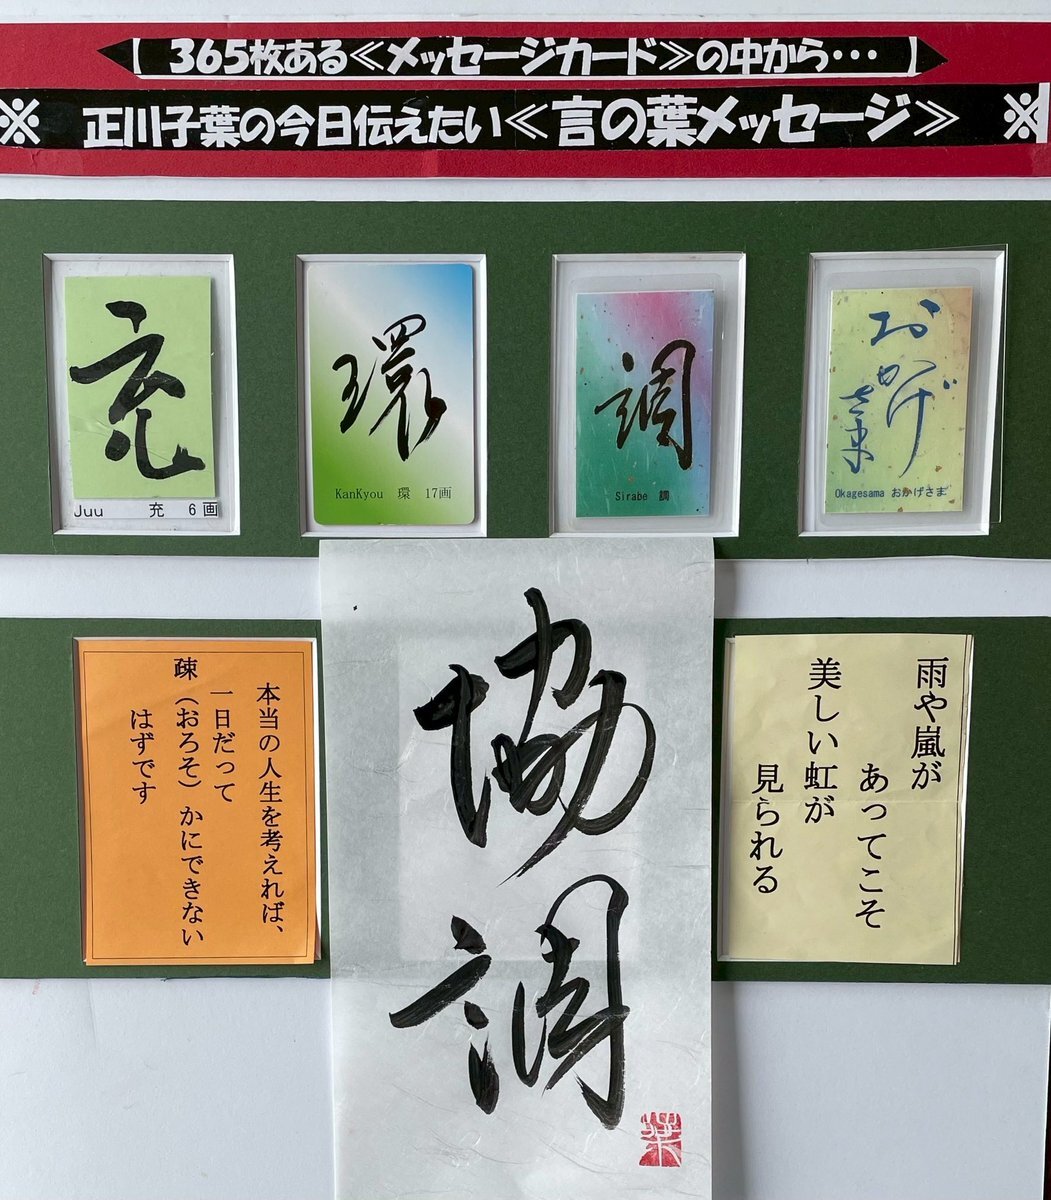 【 365枚ある≪メッセージカード≫の中から・・・ 】
※ 正川子葉の今日伝えたい≪言の葉メッセージ≫ ※
充
Juu 充 6画
環
KanKyou 環 17画
調
Sirabe 調
おかげさま
Okagesama おかげさま
本当の人生を考えれば、
一日だって
疎（おろそ）かにできない
はずです
協調
雨や嵐が
あってこそ
美しい虹が
見られる